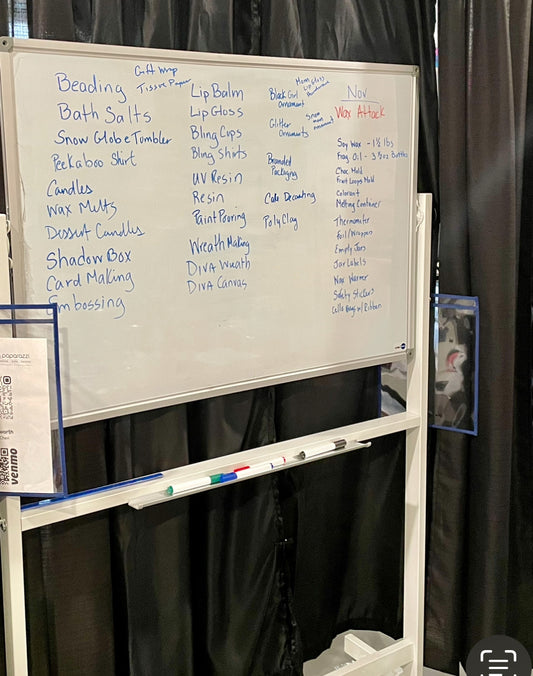 Gift Wrap
Tissue Paper
Beading
Bath Salts
Snow Globe Tumbler
Peekaboo Shirt
Candles
Wax Melts
Dessert Candles
Shadow Box
Card Making
Embossing
Lip Balm
Lip Gloss
Bling Cups
Bling Shirts
UV Resin
Resin
Paint Pouring
Wreath Making
DIVA Wreath
DIVA Canvas
Mom
Lip Gloss
Black Girl
Ornament
Snow
man
ornament
Glitter
Ornaments
Branded
Packaging
Cake Decorating
Poly Clay
Nov
Wax Attack
Soy Wax - 1½ lbs
Frag Oil - 3½oz Bottles
Choc Mold
Fruit Loops Mold
Colorant
Melting Container
Thermometer
Foil/Wrapper
Empty Jars
Jar Labels
Wax Warmer
Safety Stickers
Cello Bags w/Ribbon
paparazzi
venmo